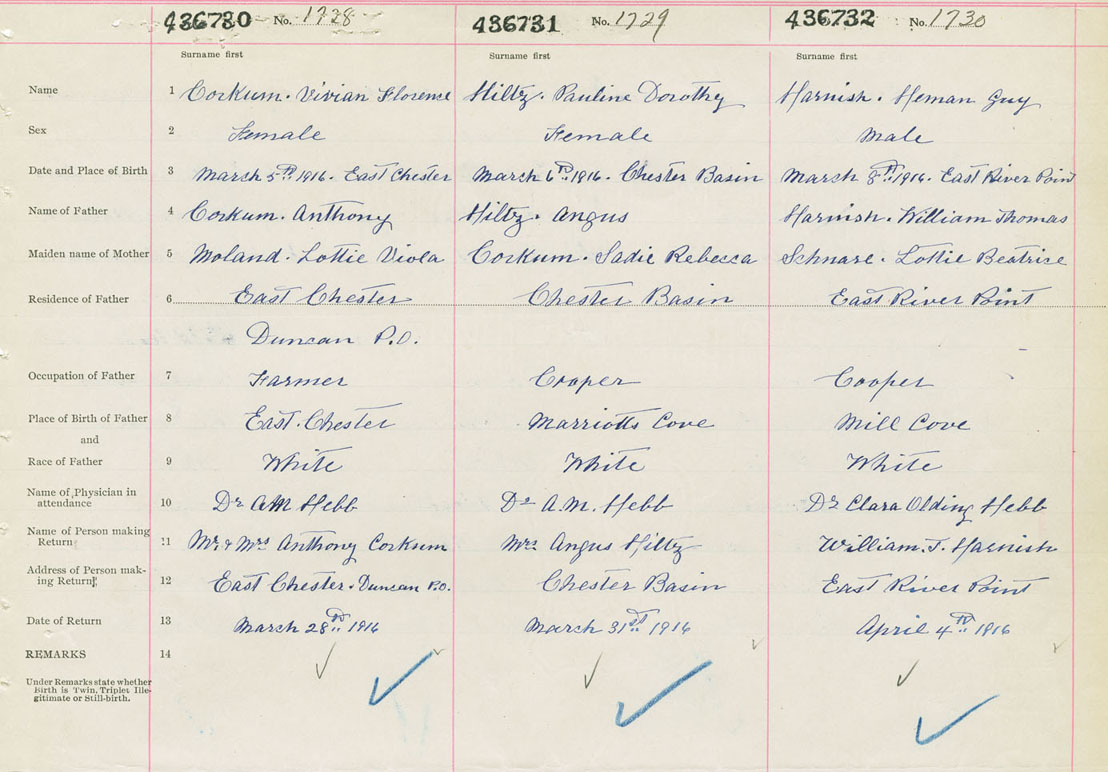 436730 No. 1728 436731 No. 1729 436732 No. 1730
Surname first Surname first Surname first
Name 1 Corkum. Vivian Florence Hiltz. Pauline Dorothy Harnish. Heman Guy
Sex 2 Female Female Male
Date and Place of Birth 3 March 5th 1916. East Chester March 6th 1916. Chester Basin March 8th 1916. East River Point
Name of Father 4 Corkum. Anthony Hiltz. Angus Harnish. William Thomas
Maiden name of Mother 5 Moland. Lottie Viola Corkum. Sadie Rebecca Schnare. Lottie Beatrice
Residence of Father 6 East Chester Chester Basin East River Point
Duncan P.O.
Occupation of Father 7 Farmer Cooper Cooper
Place of Birth of Father 8 East. Chester Marriotts Cove Mill Cove
and
Race of Father 9 White White White
Name of Physician in
attendance 10 Dr A M Hebb Dr A. M. Hebb Dr Clara Olding Hebb
Name of Person making
Return 11 Mr. & Mrs Anthony Corkum Mrs Angus Hiltz William. T. Harnish
Address of Person mak-
ing Return 12 East Chester. Duncan P.O. Chester Basin East River Point
Date of Return 13 March 28th 1916 March 31st 1916 April 4th 1916
REMARKS 14
Under Remarks state whether
Birth is Twin, Triplet Ille-
gitimate or Still-birth.